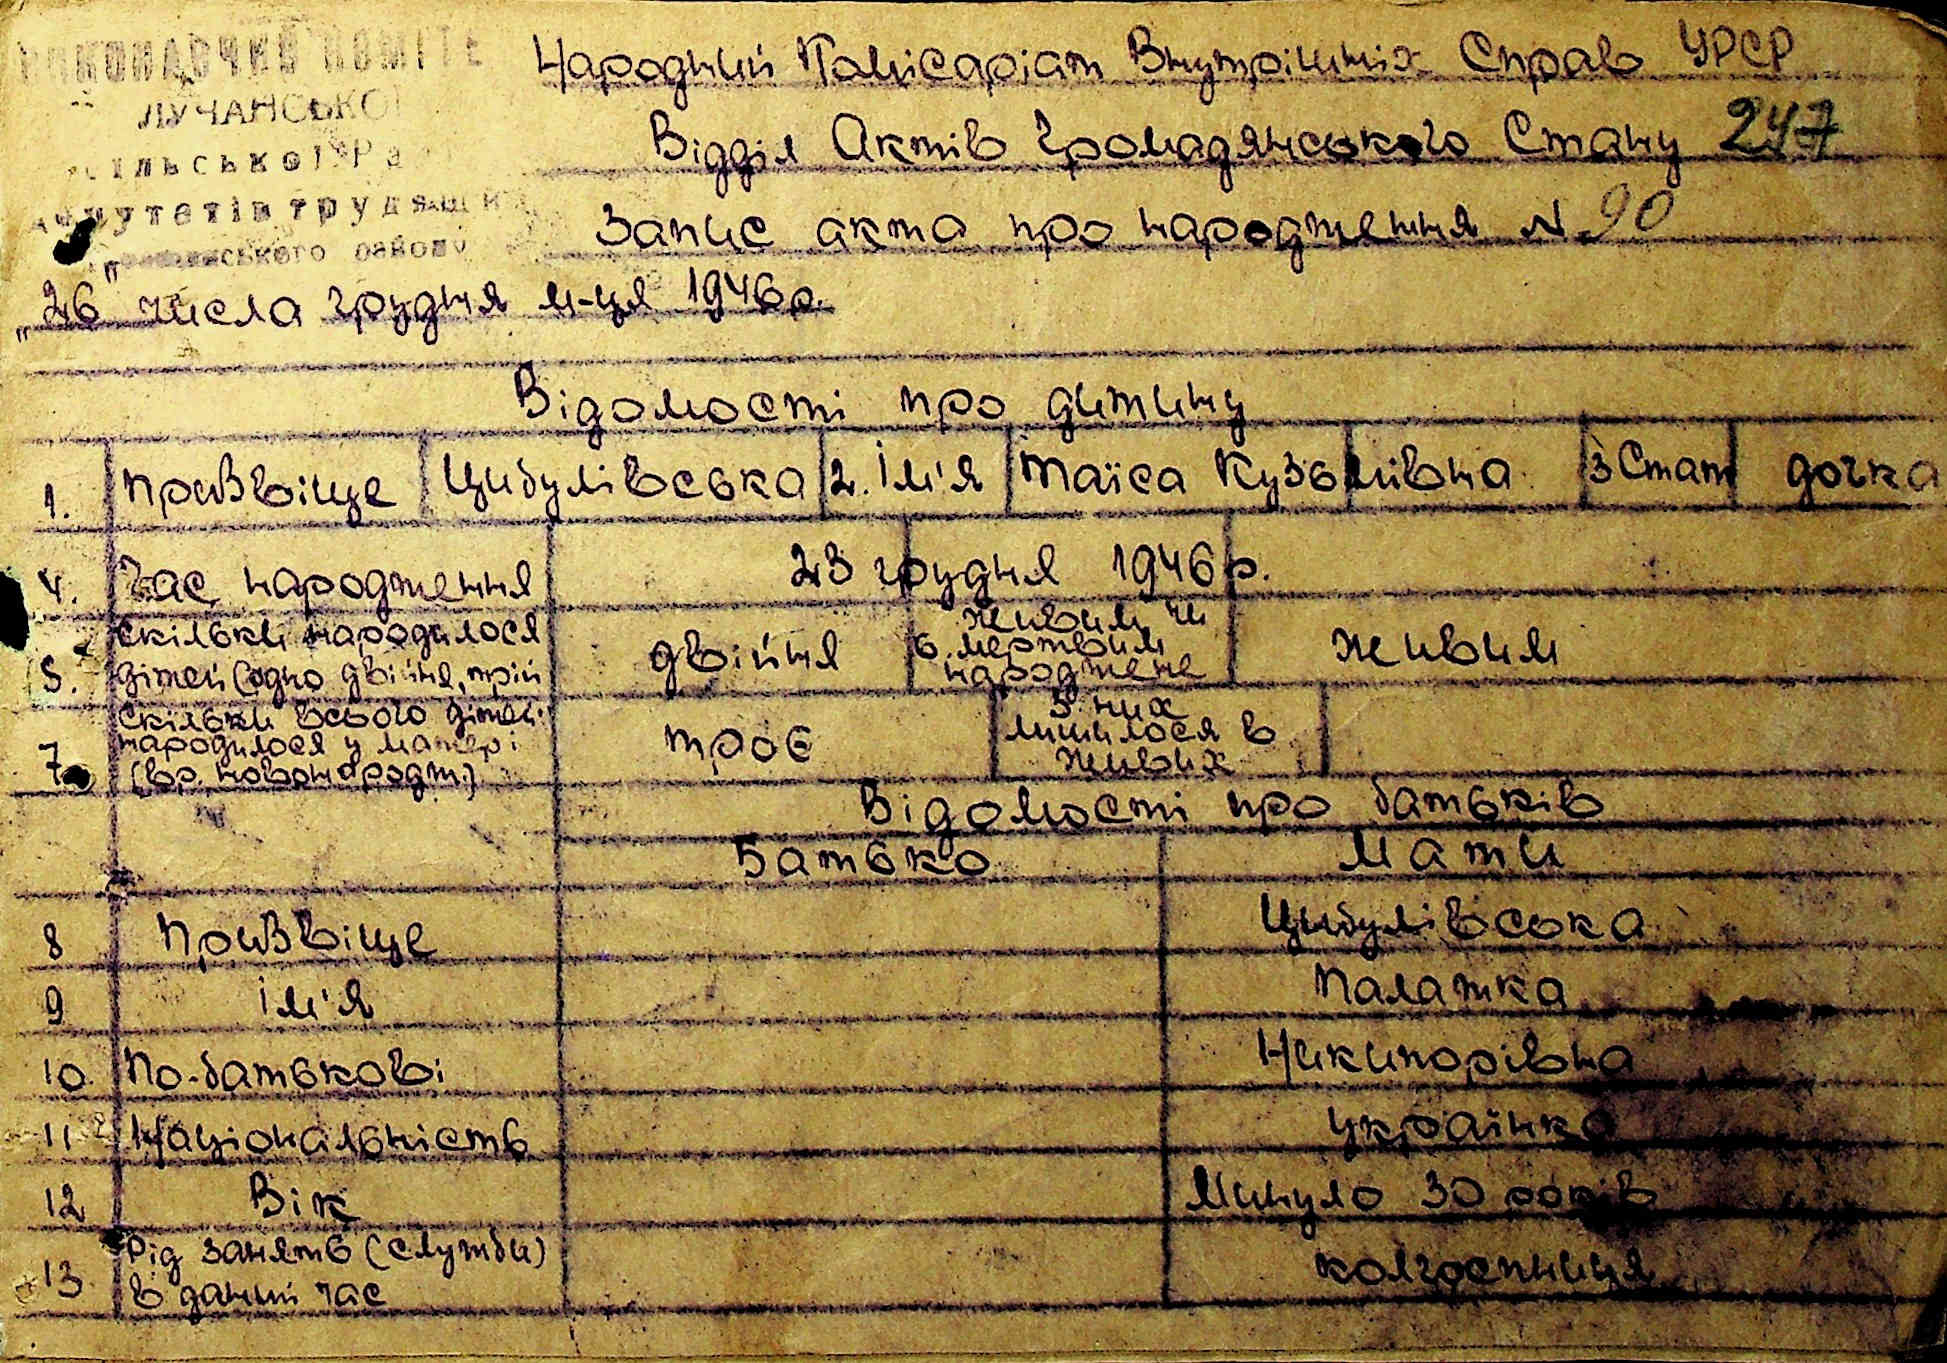 ВИКОНАВЧИЙ КОМІТЕ
ЛУЧАНСЬКОЇ
сільської Ра
депутатів трудящих
району
Народний Комісаріат Внутрішніх Справ УРСР
Відділ Актів Громадянського Стану 247
Запис акта про народження N 90
„26" числа грудня м-ця 1946р.
Відомості про дитину
1. Прізвіще Цибулівська 2. Ім'я Таїса Кузьмівна 3 Стат дочка
4. Час народження 23 грудня 1946р.
5. Скільки народилося дітей (одно двійня, трій двійня 6. живим чи мертвим народжене живим
7. Скільки всього дітей народилося у матері (вр. новонародж.) троє З них лишилося в живих
Відомості про батьків
Батько Мати
8 Прізвіще Цибулівська
9 Ім'я Палажка
10 По-батькові Никипорівна
11 Національність українка
12 Вік Минуло 30 років
13 Рід занять (служби) в даний час колгоспниця